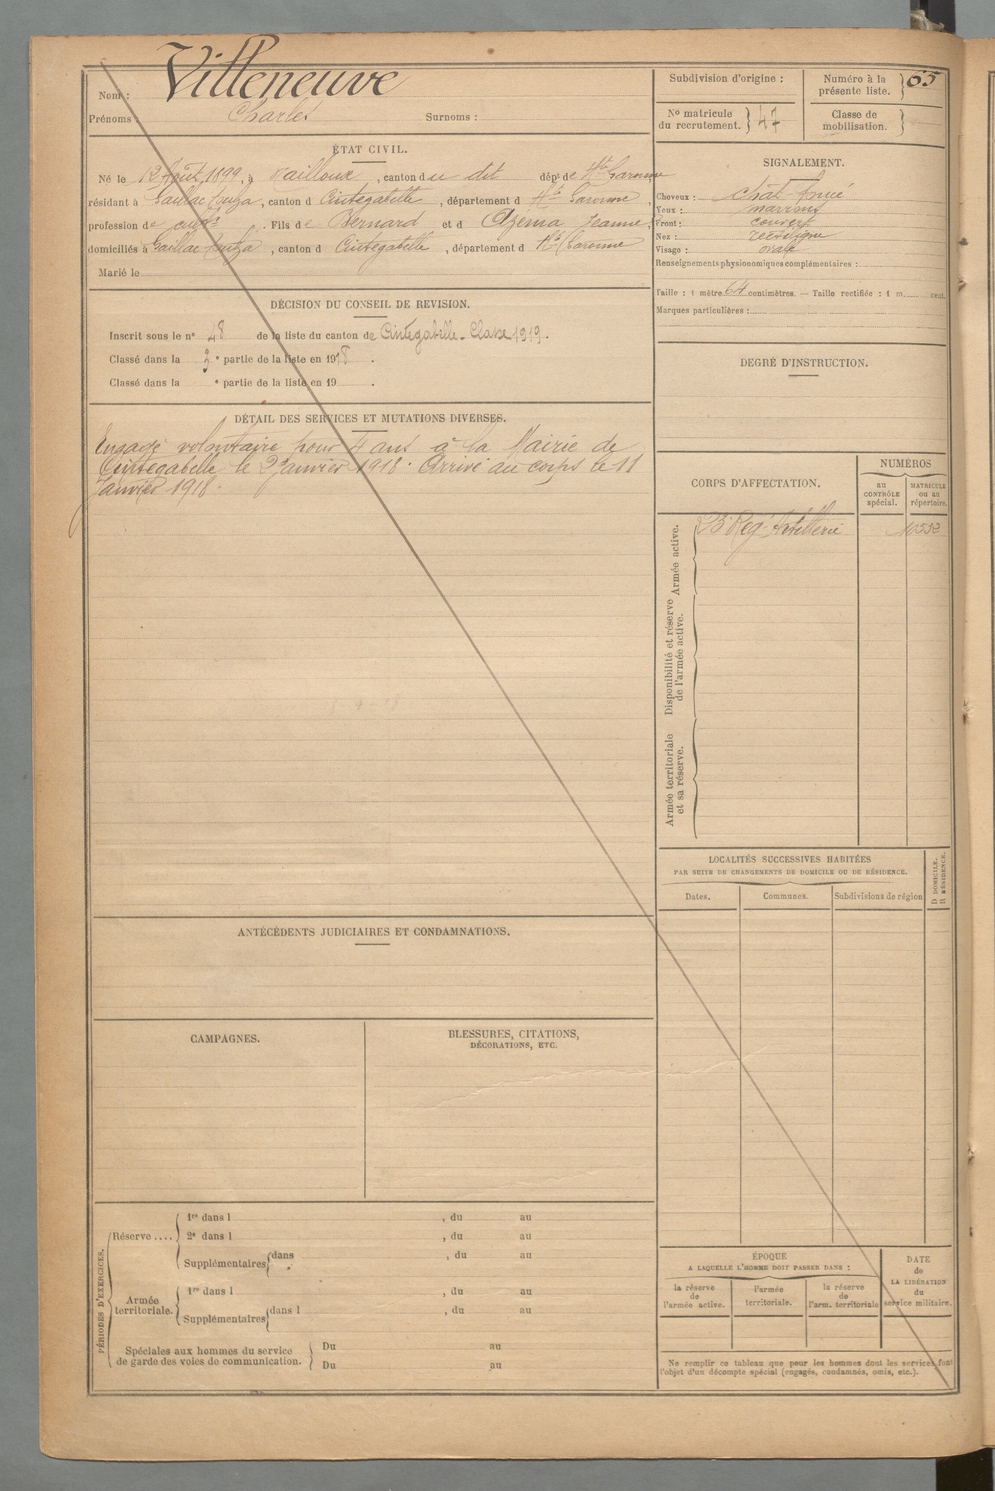 Nom : Villeneuve
Prénoms : Charles Surnoms :
ÉTAT CIVIL.
Né le 12 Août 1899, à Cailloux, canton du dit dépt de Hte Garonne
résidant à Gaillac Toulza, canton d Cintegabelle, département d Hte Garonne,
profession de cultr. Fils de Bernard et d Azema Jeanne,
domiciliés à Gaillac Toulza, canton d Cintegabelle, département d Hte Garonne
Marié le
DÉCISION DU CONSEIL DE REVISION.
Inscrit sous le n° 48 de la liste du canton de Cintegabelle - Classe 1919.
Classé dans la e partie de la liste en 1918.
Classé dans la e partie de la liste en 19 .
DÉTAIL DES SERVICES ET MUTATIONS DIVERSES.
Engagé volontaire pour 4 ans à la Mairie de
Cintegabelle le 9 Janvier 1918. Arrivé au corps le 11
Janvier 1918.
ANTÉCÉDENTS JUDICIAIRES ET CONDAMNATIONS.
CAMPAGNES.
BLESSURES, CITATIONS,
DÉCORATIONS, ETC.
PÉRIODES D'EXERCICES.
Réserve....
1re dans l , du au
2e dans l , du au
Supplémentaires dans , du au
Armée territoriale.
1re dans l , du au
Supplémentaires dans l , du au
Spéciales aux hommes du service
de garde des voies de communication.
Du au
Du au
Subdivision d'origine :
Numéro à la
présente liste. 65
N° matricule
du recrutement. 47
Classe de
mobilisation.
SIGNALEMENT.
Cheveux : chât. foncé
Yeux : marrons
Front : couvert
Nez : rectiligne
Visage : ovale
Renseignements physionomiques complémentaires :
Taille : 1 mètre 64 centimètres. — Taille rectifiée : 1 m. cent.
Marques particulières :
DEGRÉ D'INSTRUCTION.
CORPS D'AFFECTATION.
NUMÉROS
AU
CONTRÔLE
spécial.
MATRICULE
ou au
répertoire.
Armée active.
23e Rég. Artillerie 10552
Disponibilité et réserve
de l'armée active.
Armée territoriale
et sa réserve.
LOCALITÉS SUCCESSIVES HABITÉES
PAR SUITE DE CHANGEMENTS DE DOMICILE OU DE RÉSIDENCE.
D DOMICILE.
R RÉSIDENCE.
Dates. Communes. Subdivisions de région
ÉPOQUE
A LAQUELLE L'HOMME DOIT PASSER DANS :
la réserve
de
l'armée active.
l'armée
territoriale.
la réserve
de
l'arm. territoriale
DATE
de
LA LIBÉRATION
du
service militaire.
Ne remplir ce tableau que pour les hommes dont les services font
l'objet d'un décompte spécial (engagés, condamnés, omis, etc.).